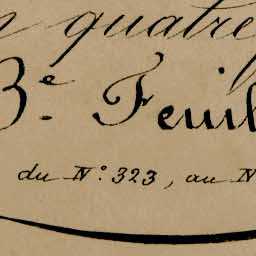 n quatre
3e. Feuil
du No. 323, au N